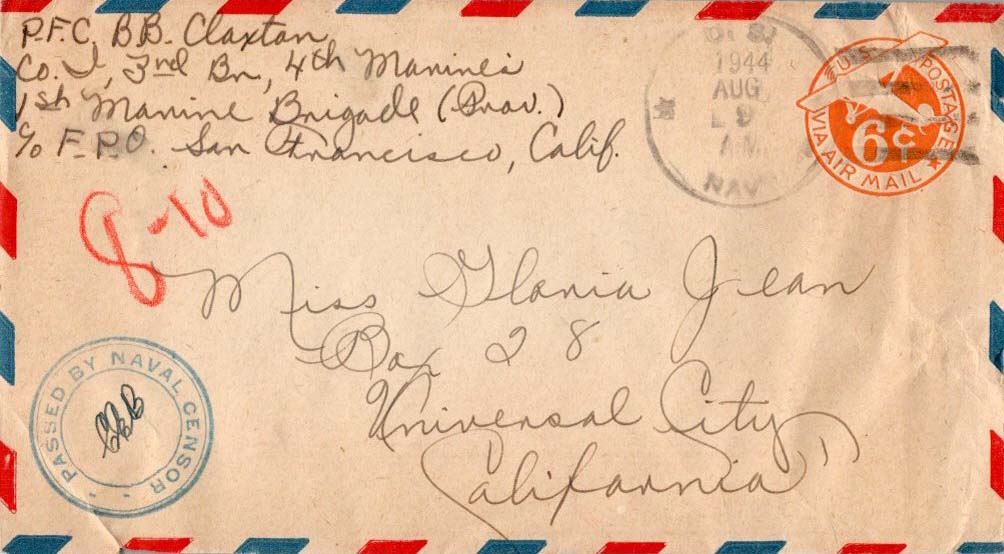 P.F.C. B.B. Claxton
Co. I, 3rd Bn, 4th Marines
1st Marine Brigade (Prov.)
c/o F.P.O. San Francisco, Calif.
U.S.
1944
AUG
9
AM
NAVY
U.S. POSTAGE
6¢
VIA AIR MAIL
8-10
Miss Gloria Jean
Box 28
Universal City
California
PASSED BY NAVAL CENSOR